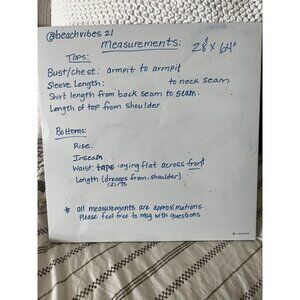 @beachvibes 21
Measurements:
Tops:
Bust/chest: armpit to armpit
Sleeve Length: to neck seam
Shirt length from back seam to seam:
Length of top from shoulder
Bottoms:
Rise:
Inseam
Waist: tape laying flat across front
Length (dresses from shoulder)
skirts
* all measurements are approximations.
Please feel free to msg with questions